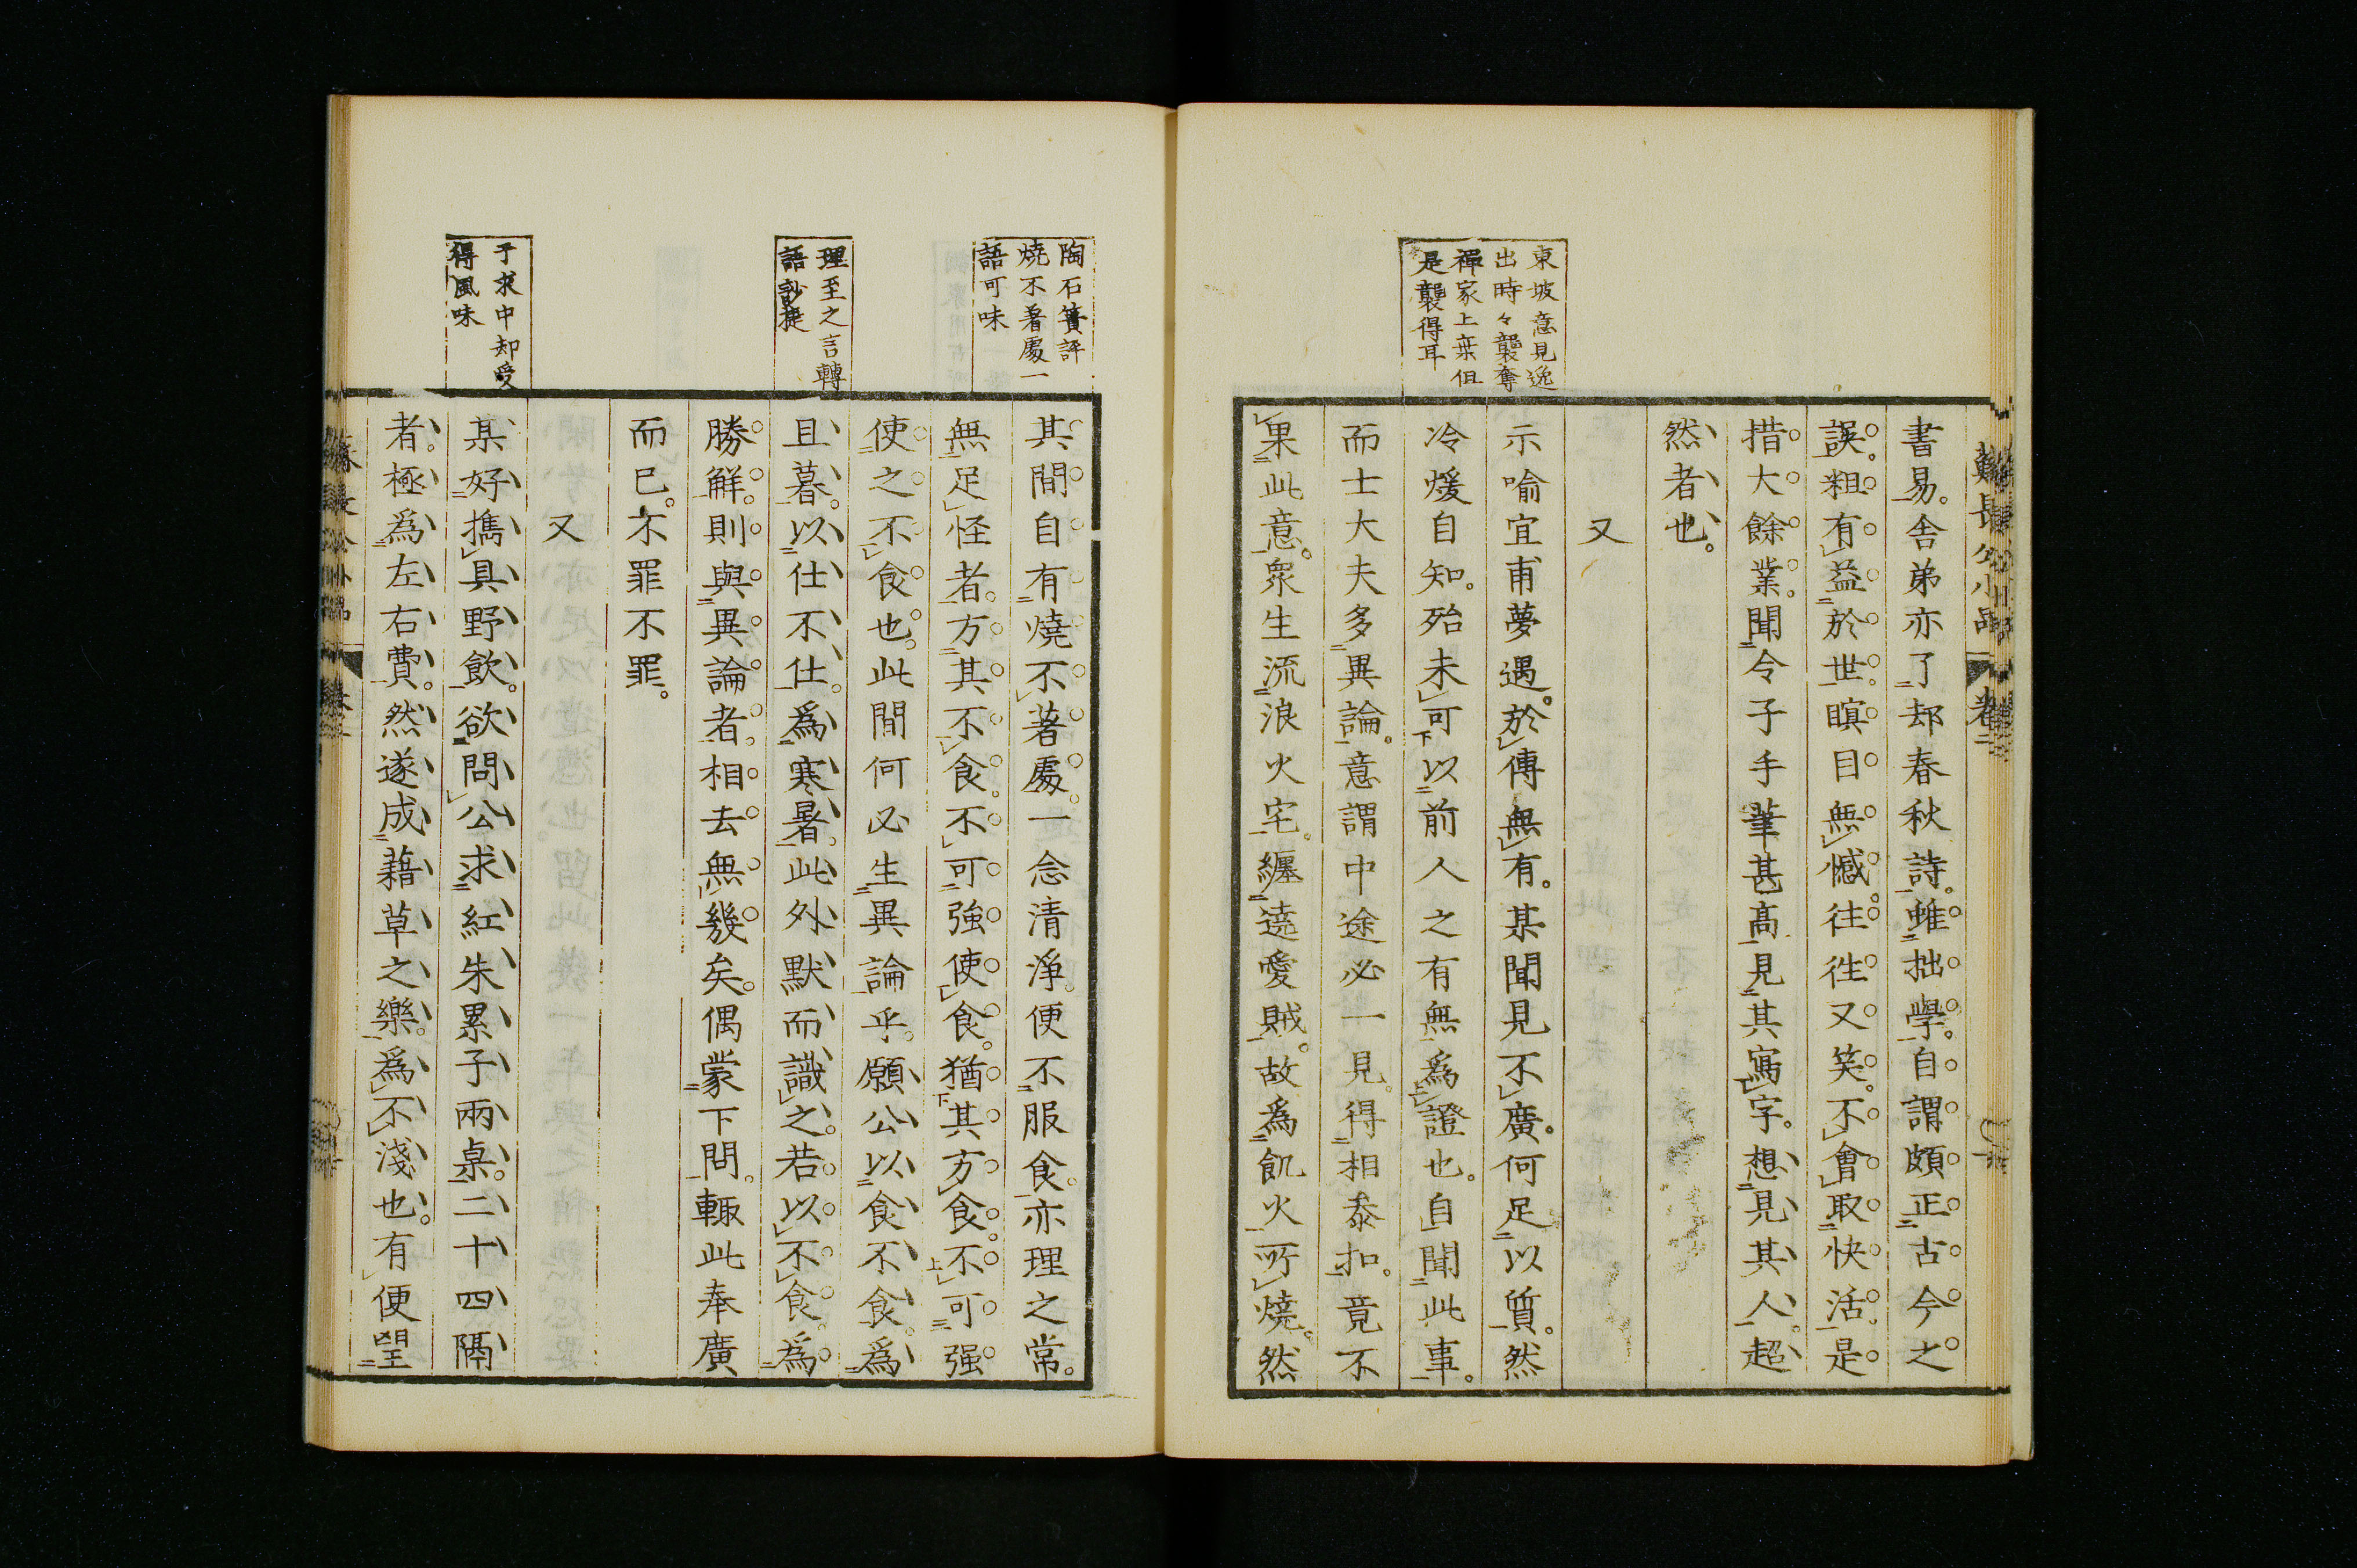 蘇長公小品
卷二
東坡意見逸
出時々襲奪
禪家上乗但
是襲得耳
書易。舎弟亦了却春秋詩。雖拙學。自謂頗正古今之
誤。粗有益於世。瞑目無憾。往徃又笑。不會取快活。是
措大餘業。聞令子手筆甚高。見其寫字。想見其人。超
然者也。
又
示喻宜甫夢遇。於傳無有。某聞見不廣。何足以質。然
冷煖自知。殆未可以前人之有無爲證也。自聞此事。
而士大夫多異論。意謂中途必一見。得相泰扣。竟不
果此意。衆生流浪火宅。纏遶愛賊。故爲飢火所燒。然
陶石簣評
燒不著處一
語可味
理至之言轉
語玅捷
于求中却受
得風味
其間自有燒不著處。一念清淨。便不服食。亦理之常。
無足怪者。方其不食。不可強使食。猶其方食。不可强
使之不食也。此間何必生異論乎。願公以食不食。爲
且暮。以仕不仕。爲寒暑。此外默而識之。若以不食。爲
勝解。則與異論者。相去無幾矣。偶蒙下問。輙此奉廣
而已。不罪不罪。
又
某好攜具野飲。欲問公求紅朱累子兩桌。二十四隔
者。極爲左右費。然遂成藉草之樂。爲不淺也。有便望